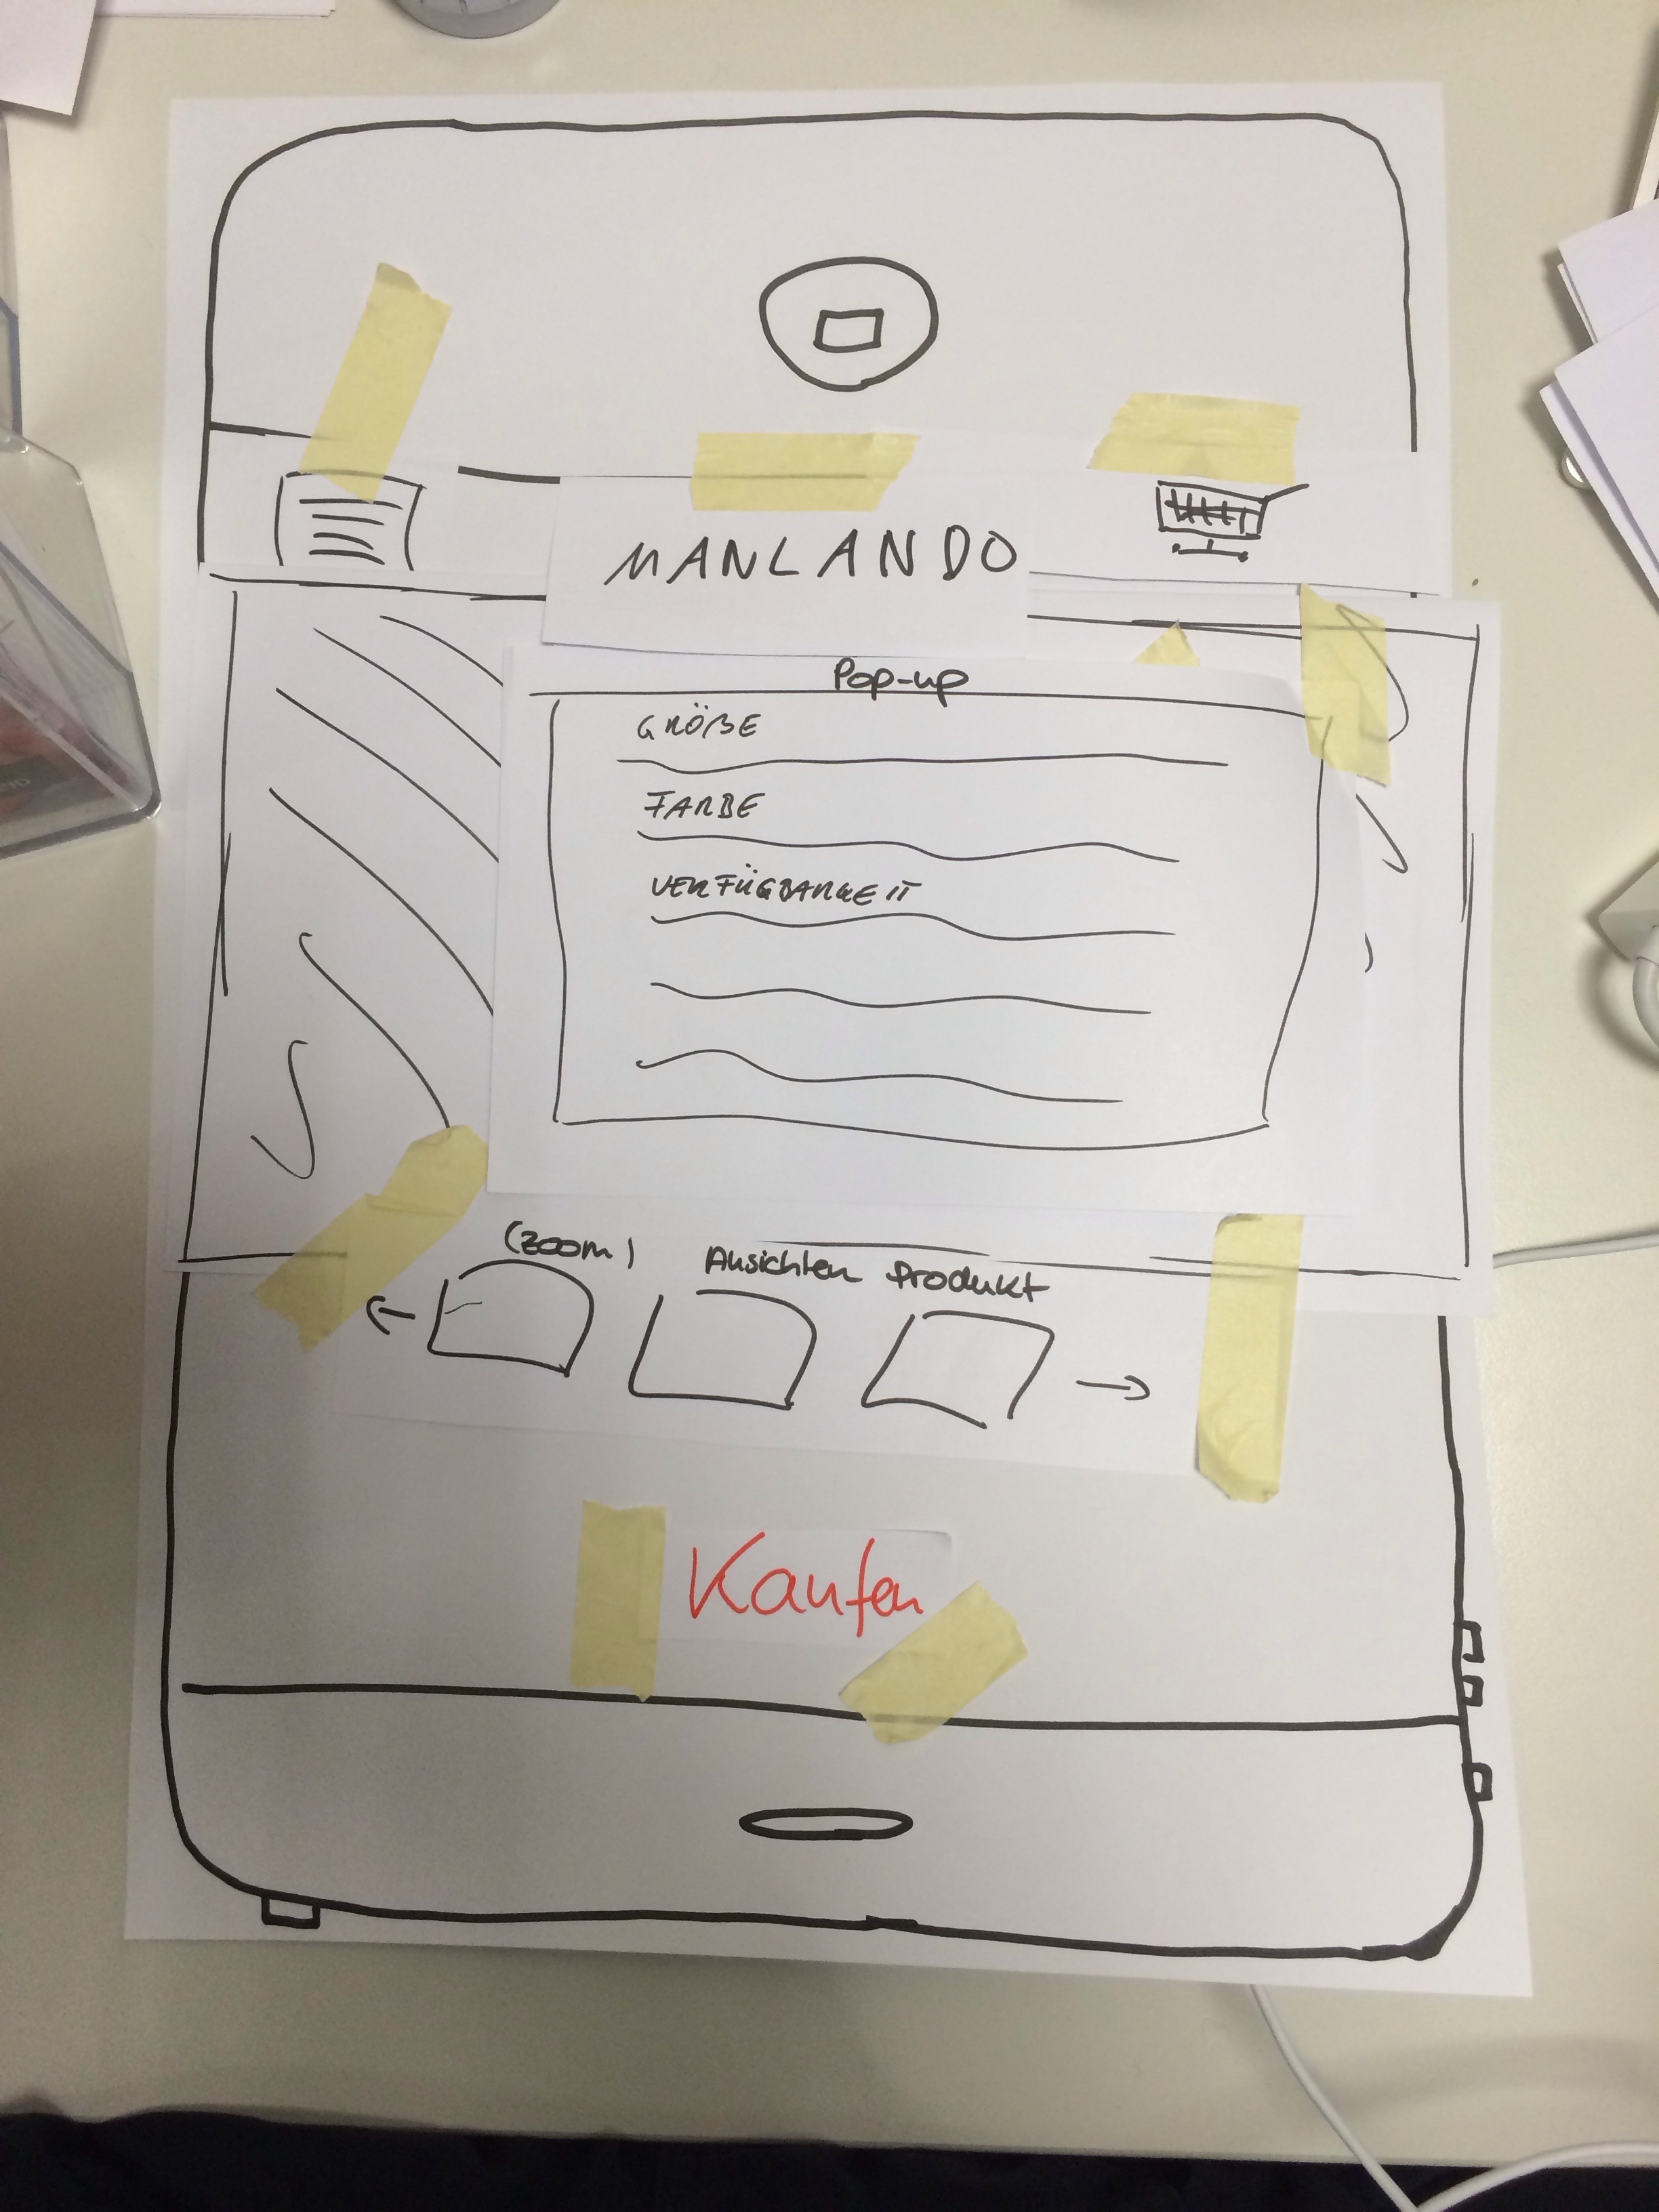 MANLANDO
Pop-up
GRÖßE
FARBE
VERFÜGBARKEIT
(Zoom) Ansichten Produkt
Kaufen